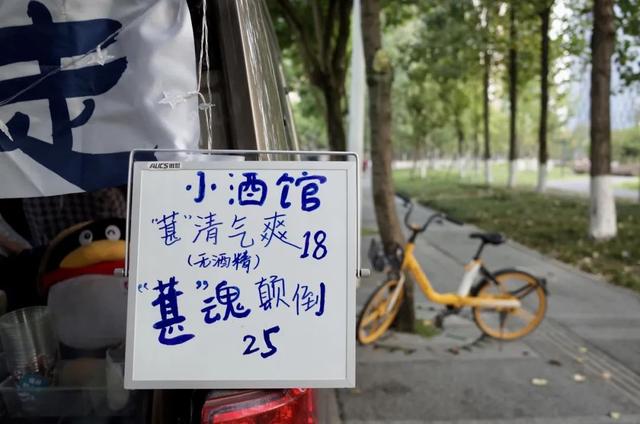 走
AUCS
小酒馆
"甚"清气爽 18
(无酒精)
"甚"魂颠倒
25